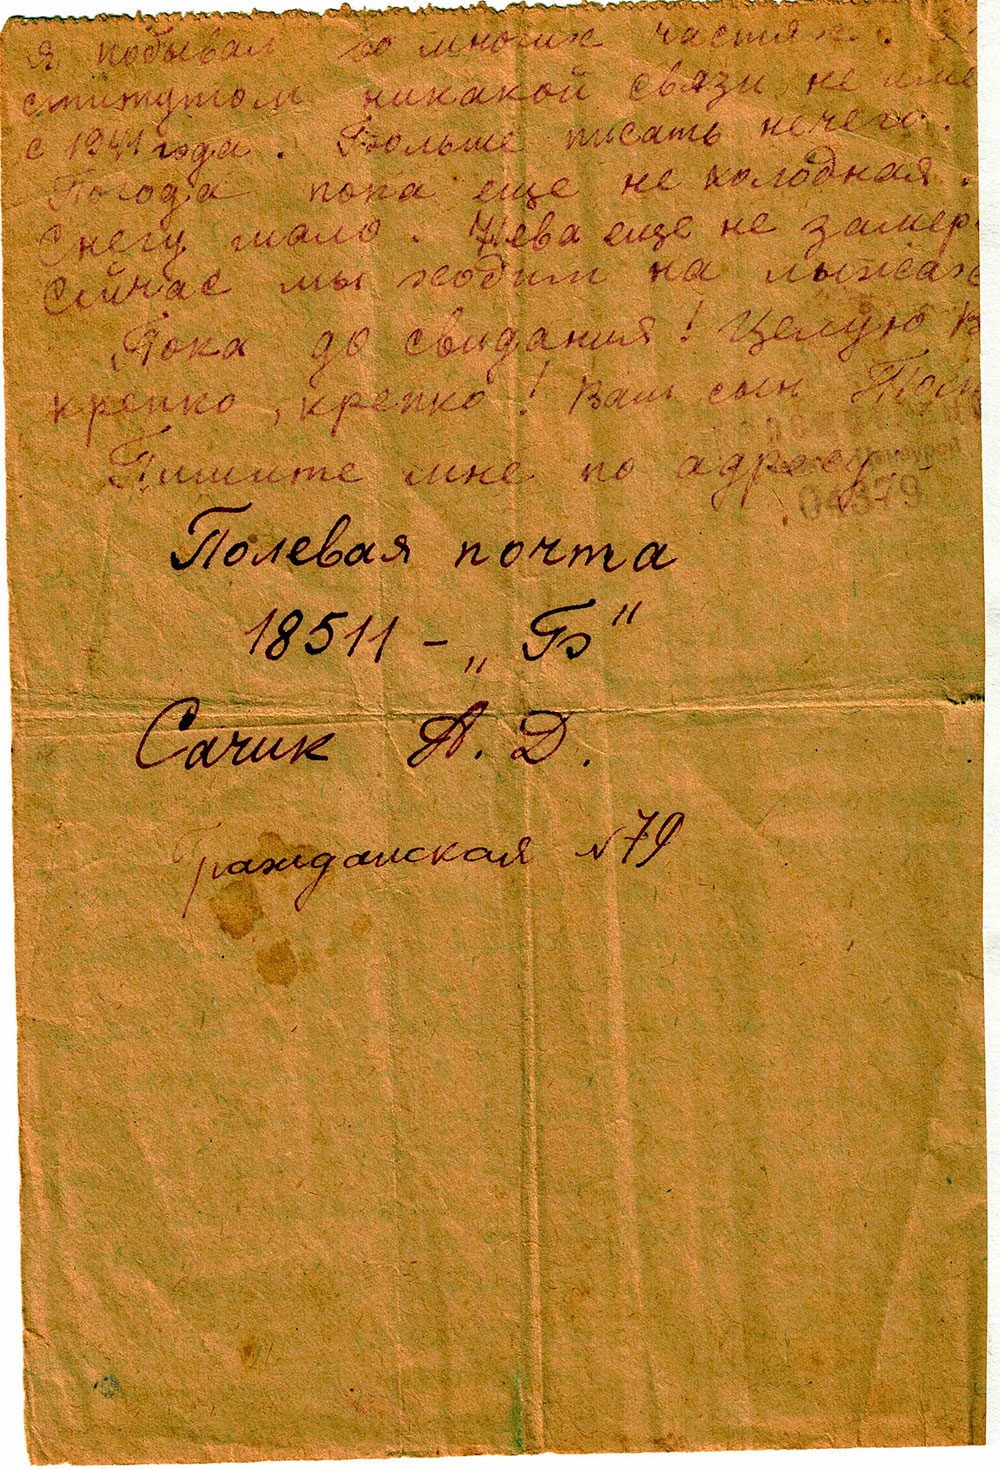 я побывал во многих частях.
ститутом никакой связи не име
с 1941 года. Больше писать нечего.
Погода пока еще не холодная.
Снегу мало. Нева еще не замер
Сейчас мы ходим на лыжах
Пока до свидания! Целую В
крепко, крепко! Ваш сын
Пишите мне по адресу:
04379
Полевая почта
18511 - „Б"
Сачик А. Д.
Гражданская №79